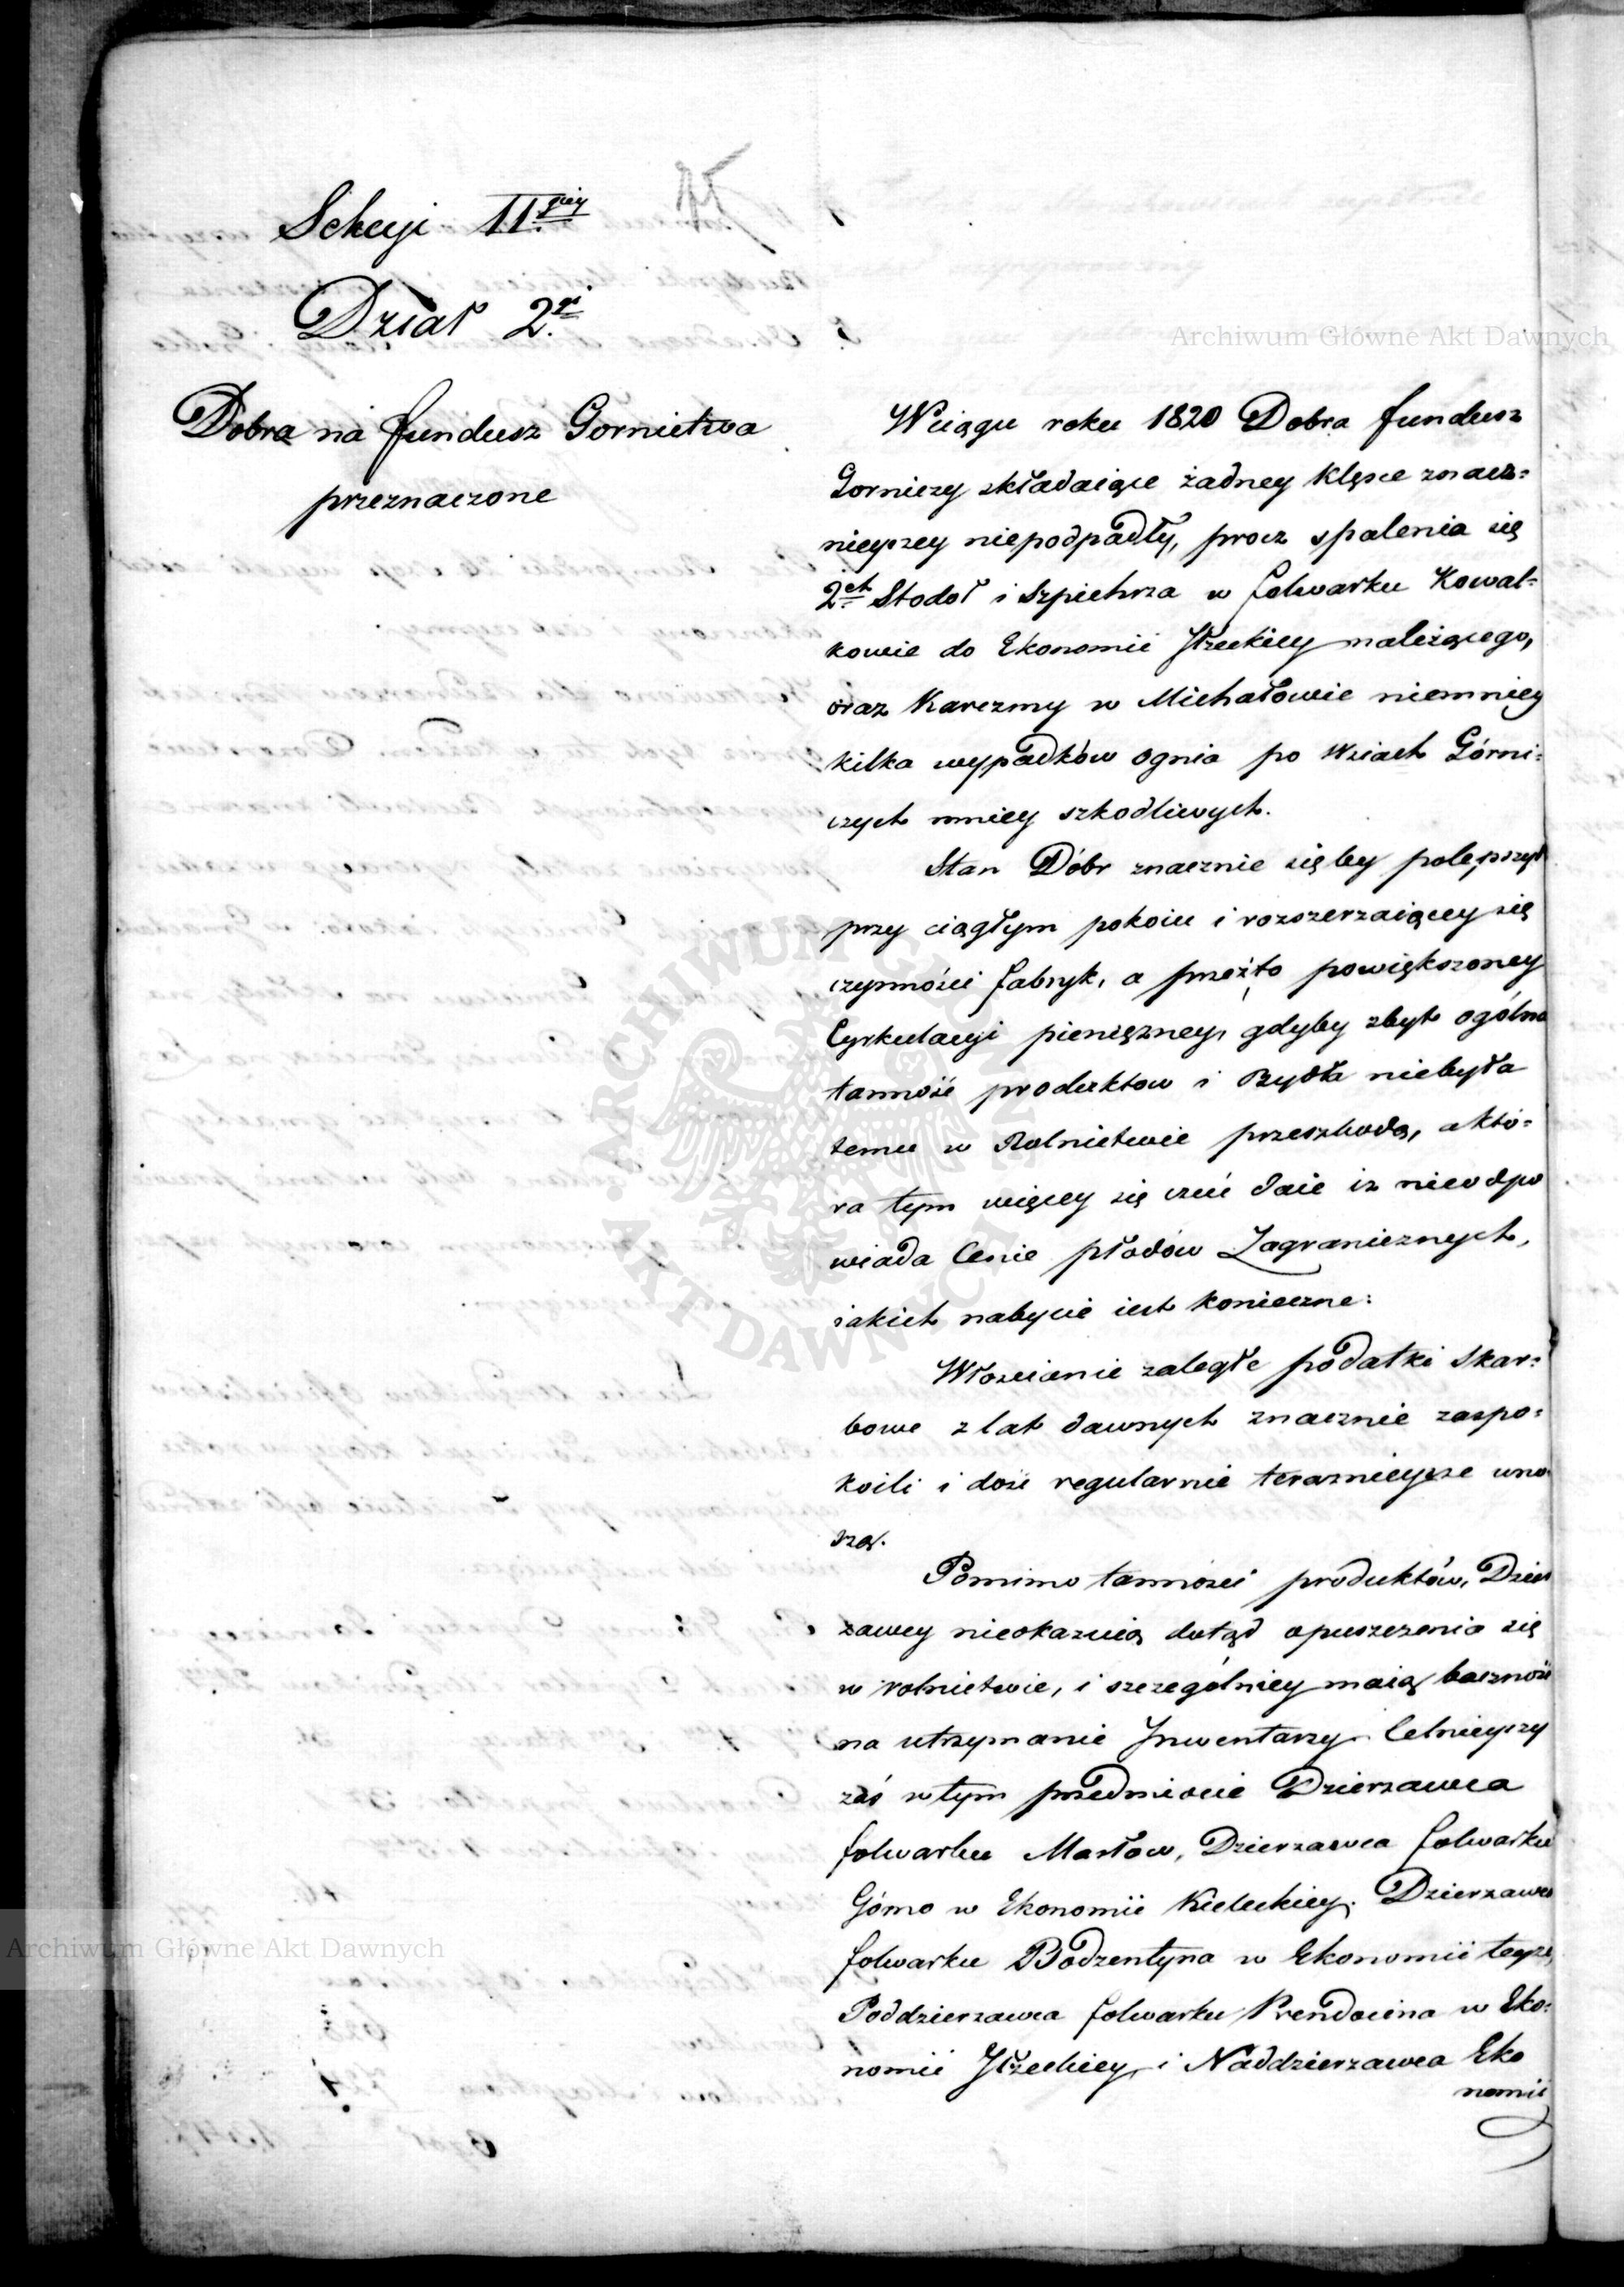 Sekcyi 11giey
Dział 2gi
Dobra na fundusz Gornictwa
przeznaczone
Wciągu roku 1820 Dobra fundusz
Gorniczy składaiące żadney klęsce znacz=
nieyszey niepodpadły, procz spalenia się
2ch Stodoł i Szpichrza w folwarku Kowal=
kowie do Ekonomii Iłżeckiey należącego,
oraz Karczmy w Michałowie niemniey
kilka wypadków ognia po Wsiach Górni=
czych mniey szkodliwych.
Stan Dóbr znacznie sięby polepszył
przy ciągłym pokoiu i rozszerzaiącey się
czynności fabryk, a przeżto powiększoney
Cyrkulacyi pieniężney, gdyby zbyt ogólna
tanność produktow i Bydła niebyła
temu w Rolnictwie przeszkodą, aktó=
ra tym więcey się czuć daie iz nieodpo
wiada Cenie płodów Zagranicznych,
iakich nabycie iest konieczne:
Włoscianie zaległe podatki skar=
bowe z lat dawnych znacznie zaspo=
koili i dość regularnie teraznieysze wno
szą.
Pomimo tanności produktów, Dzier
zawcy nieokazuią dotąd opuszczenia się
w rolnictwie, i szczególniey maią baczność
na utrzymanie Inwentarzy. Celnieyszy
zaś wtym przedmiocie Dzierzawca
folwarku Masłow, Dzierzawca folwarku
Górno w Ekonomii Kieleckiey. Dzierzawca
folwarku Bodzentyna w Ekonomii teyże,
Poddzierzawca folwarku Prendocina w Eko=
nomii Iłżeckiey, i Naddzierzawca Eko
nomii
Archiwum Główne Akt Dawnych
Archiwum Główne Akt Dawnych
ARCHIWUM GŁÓWNE AKT DAWNYCH